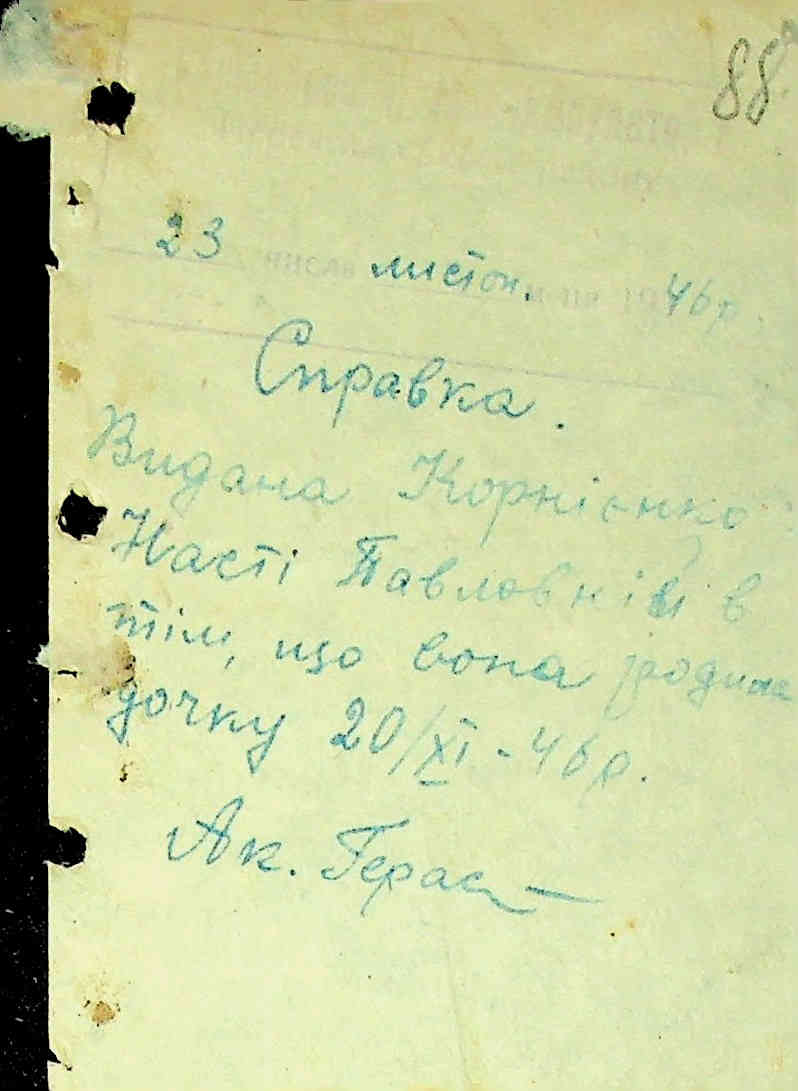 88
23 листоп. 46 р.
Справка.
Видана Корнієнко
Насті Павловній в
тім, що вона родила
дочку 20/XI - 46 р.
Ак. Герас